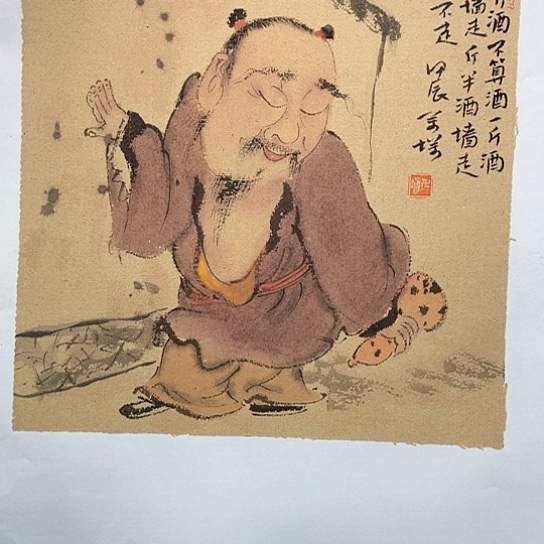 斤酒不算酒一斤酒
墙走斤半酒墙走
不走 甲辰